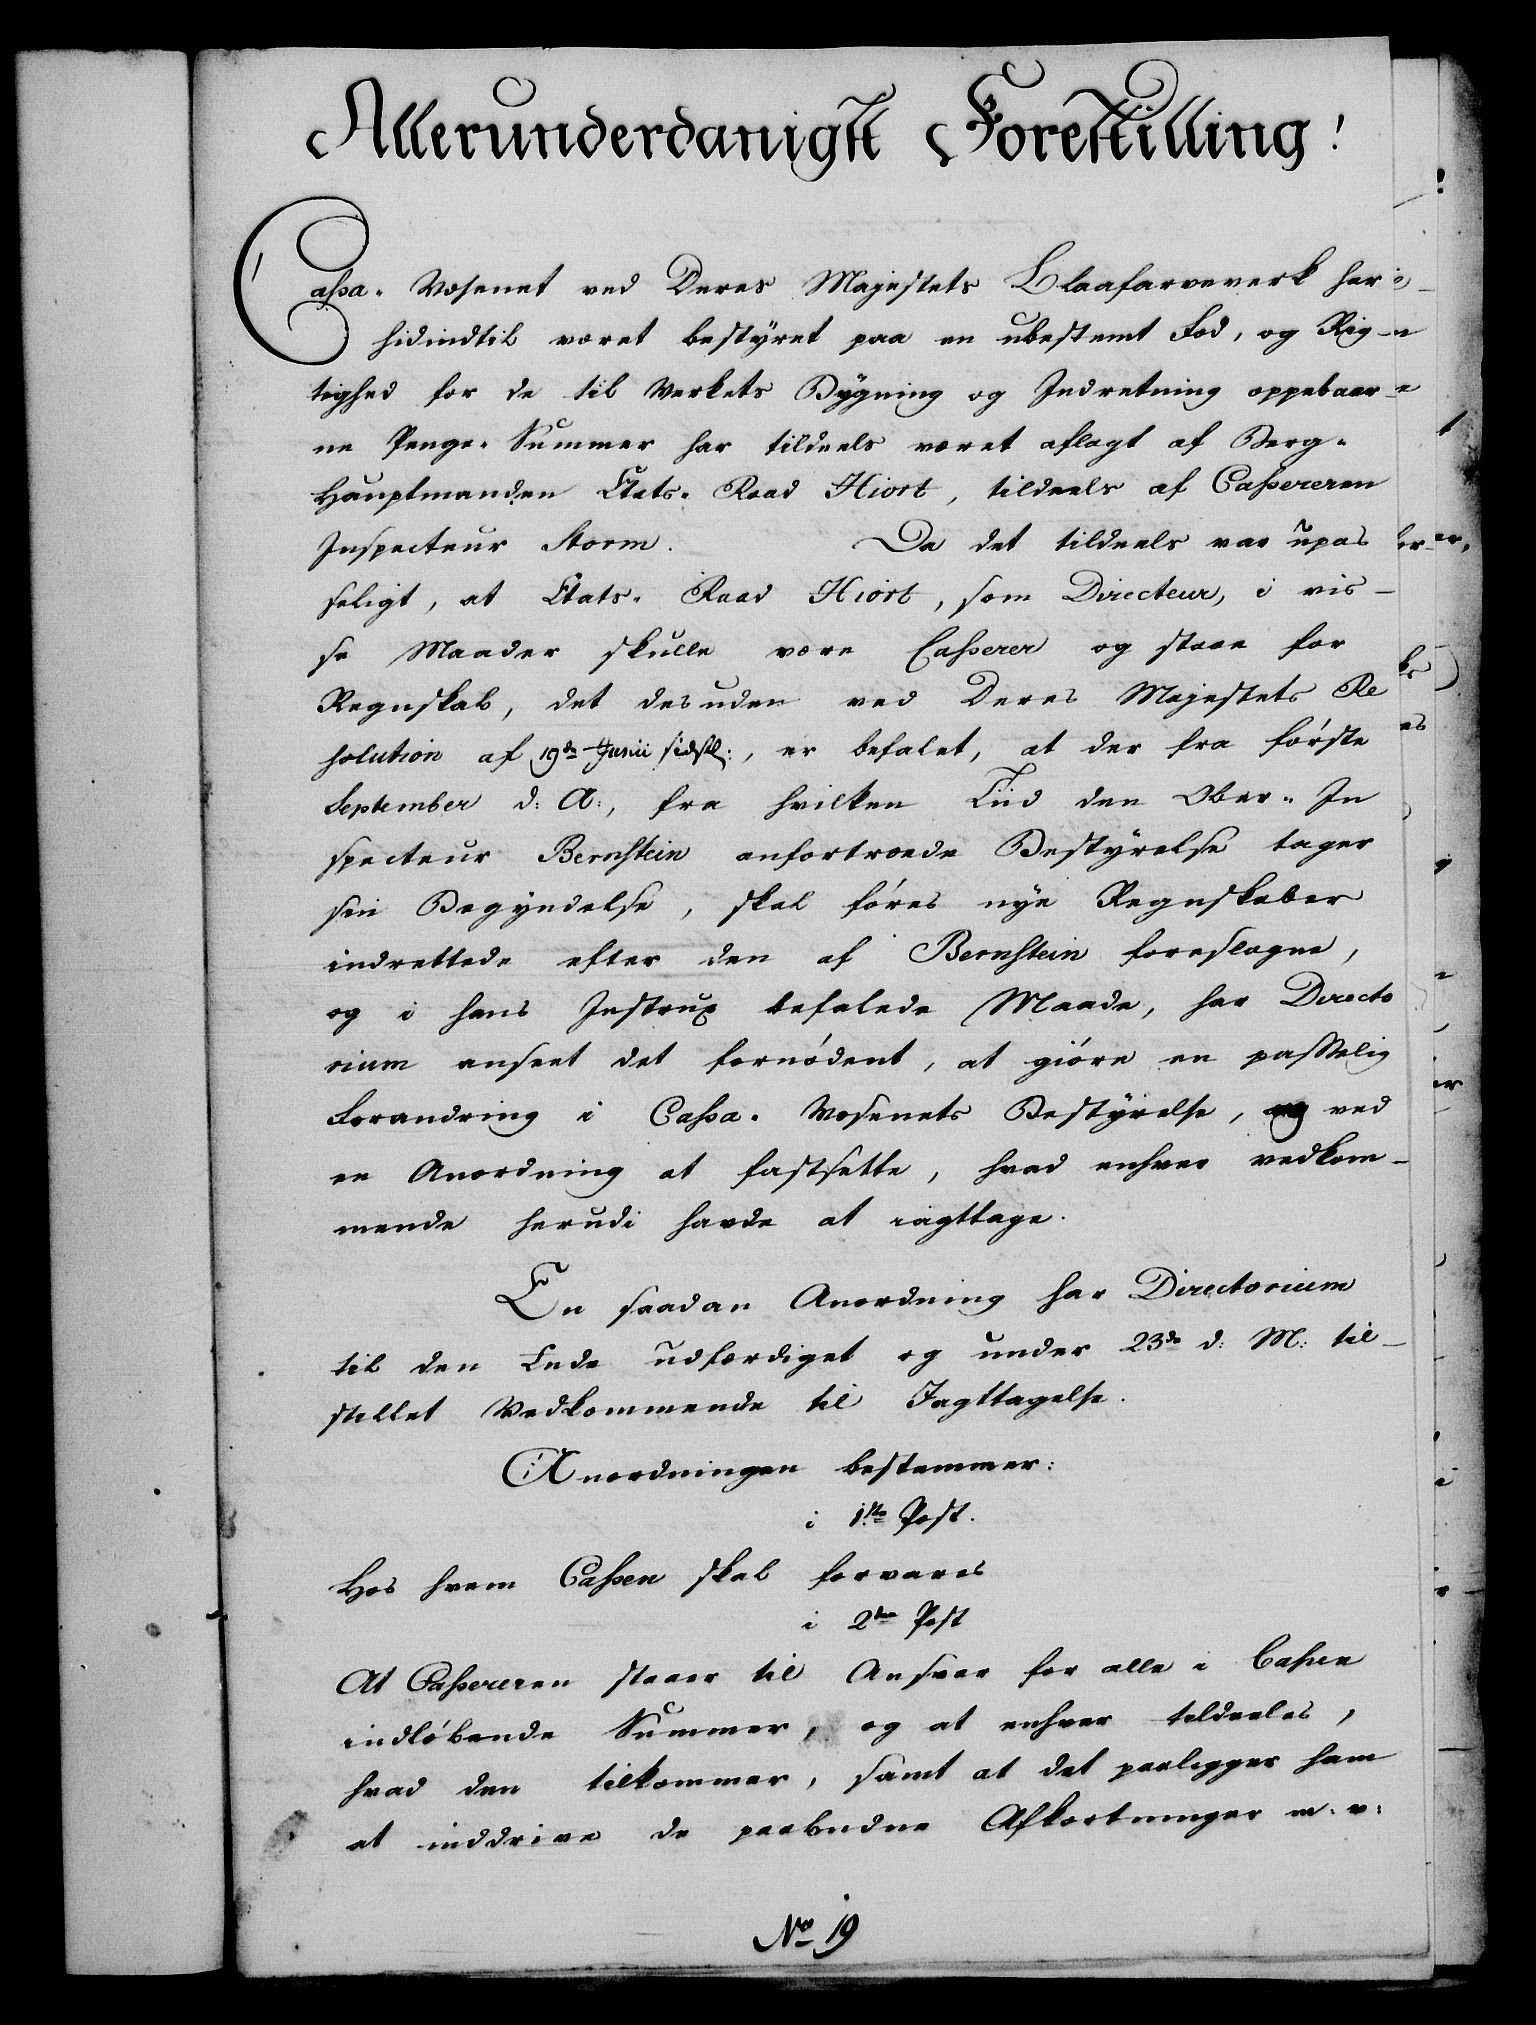 Allerunderdanigst Forestilling!
Cassa-Væsenet ved Deres Majestets Blaafarveverk har
hidindtil været bestyret paa en ubestemt Fod, og Rig-
tighed for de til Verkets Bygning og Indretning oppebaar-
ne Penge-Summer har tildeels været aflagt af Berg-
Hauptmanden Etats-Raad Hiort, tildeels af Cassereren
Inspecteur Storm. Da det tildeels var upas
seligt, at Etats-Raad Hiort, som Directeur, i vis-
se Maader skulle være Casserer og staae for
Regnskab, det desuden ved Deres Majestets Re
solution af 19de Junii sidstl:, er befalet, at der fra første
September d: A:, fra hvilken Tiid den Ober-In
specteur Bernstein anfortroede Bestyrelse tager
sin Begyndelse, skal føres nye Regnskaber
indrettede efter den af Bernstein foreslagne,
og i hans Instrux befalede Maade, har Directo
rium anseet det fornødent, at giøre en passelig
Forandring i Cassa-Væsenets Bestyrelse, og ved
en Anordning at fastsette, hvad enhver vedkom-
mende herudi havde at iagttage.
En saadan Anordning har Directorium
til den Ende udfærdiget og under 23de d: M: til-
stillet Vedkommende til Iagttagelse.
Anordningen bestemmer:
i 1ste Post.
Hos hvem Cassen skal forvares
i 2den Post
At Cassereren staaer til Ansvar for alle i Cassen
indløbende Summer, og at enhver tildeeles,
hvad den tilkommer, samt at det paaligger ham
at inddrive de paabudne Afkortninger m: v:
No 19